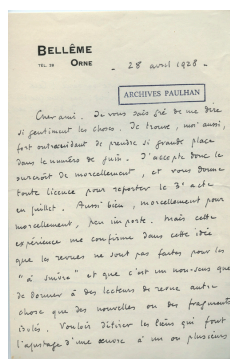 BELLÊME
TEL. 38 ORNE
- 28 avril 1928 -
ARCHIVES PAULHAN
Cher ami. Je vous sais gré de me dire
si gentiment les choses. Je trouve, moi aussi,
fort outrecuidant de prendre si grande place
dans le numéro de juin. J'accepte donc le
surcroît de morcellement, et vous donne
toute licence pour reporter le 3e acte
en juillet. Aussi bien, morcellement pour
morcellement, peu importe. Mais cette
expérience me confirme dans cette idée
que les revues ne sont pas faites pour les
"à suivre" et que c'est un non-sens que
de donner à des lecteurs de revue autre
chose que des nouvelles ou des fragments
isolés. Vouloir les liens qui font
l'ajustage d'une œuvre à un ou plusieurs